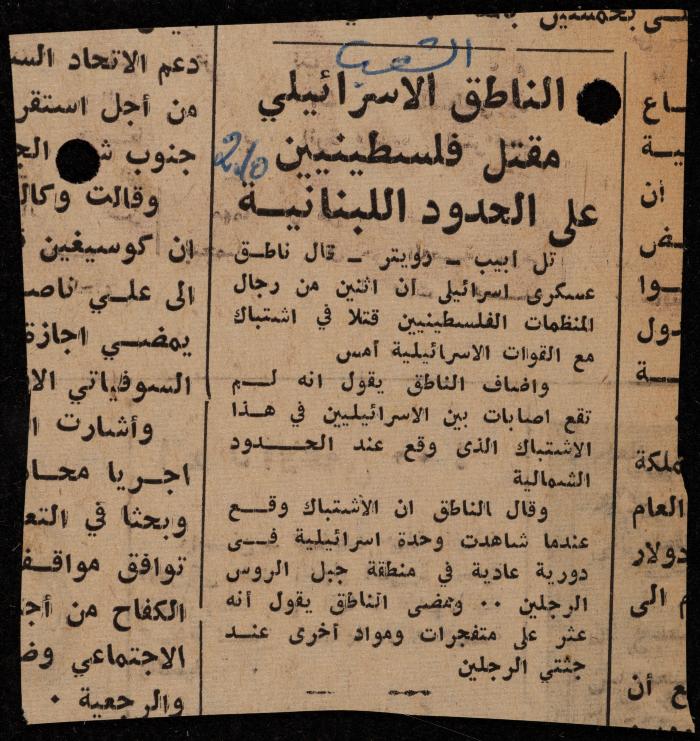 ـى بخمسين
الشعب
2/5
الناطق الاسرائيلي
مقتل فلسطينيين
على الحدود اللبنانيــة
تل ابيب ــ رويتر ــ قال ناطــق
عسكرى اسرائيلى ان اثنين من رجال
المنظمات الفلسطينيين قتلا في اشتباك
مع القوات الاسرائيلية أمس
واضاف الناطق يقول انه لــم
تقع اصابات بين الاسرائيليين في هــذا
الاشتباك الذى وقع عند الحــدود
الشمالية
وقال الناطق ان الاشتباك وقــع
عندما شاهدت وحدة اسرائيلية فــى
دورية عادية في منطقة جبل الروس
الرجلين ٠٠ ومضى الناطق يقول أنه
عثر على متفجرات ومواد أخرى عنــد
جثتي الرجلين
دعم الاتحاد الس
من أجل استقر
جنوب
وقالت وكال
ان كوسيغين
الى علــي ناصـ
يمضــي اجازة
السوفياتي الا
وأشارت ا
اجــريا محــا
وبحثا في التعـ
توافق مواقــفـ
الكفاح من أجـ
الاجتماعي وضـ
والرجعية ٠
ـاع
ـية
أن
ـض
ـوا
دول
ـة
ـملكة
العام
دولار
م الى
ع أن